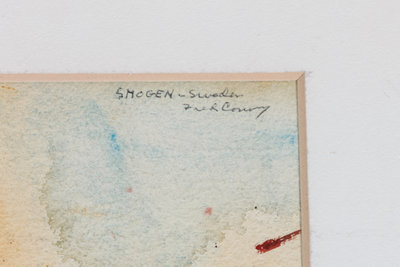 SMOGEN - Sweden
Fred Conway